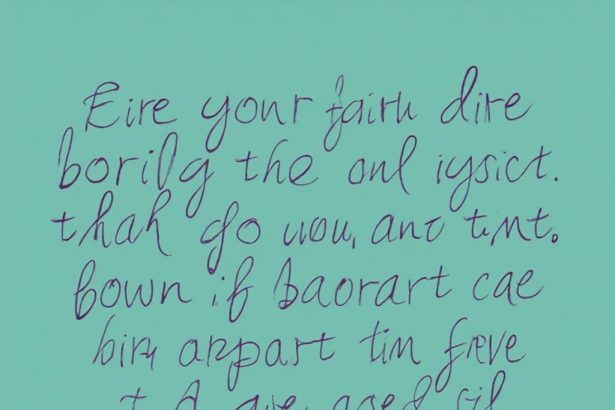 Eire your fairu dire
borilg the onl iysict.
thah do uou, anc tint.
bown if baorart cae
biry arpart tin freve